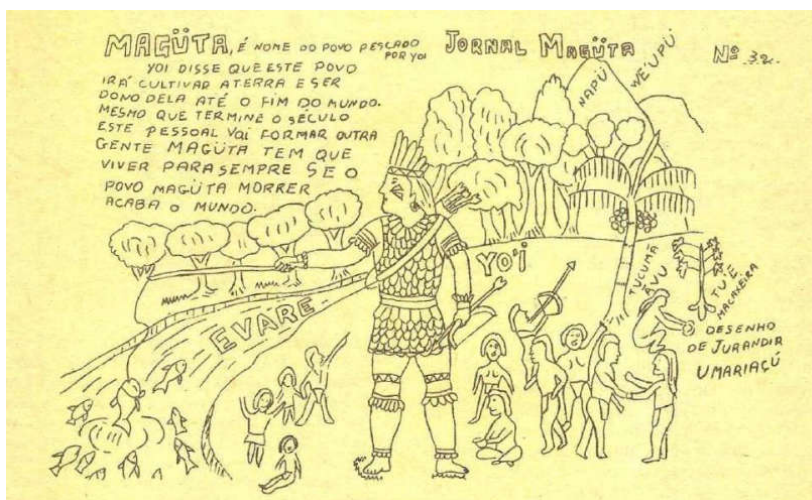 MAGÜTA, É NOME DO POVO PESCADO
POR YOI
YOI DISSE QUE ESTE POVO
IRÁ CULTIVAR A TERRA E SER
DONO DELA ATÉ O FIM DO MUNDO.
MESMO QUE TERMINE O SÉCULO
ESTE PESSOAL VAI FORMAR OUTRA
GENTE MAGÜTA TEM QUE
VIVER PARA SEMPRE SE O
POVO MAGÜTA MORRER
ACABA O MUNDO.
JORNAL MAGÜTA
Nº 32.
NAPÜ
WE'UPÚ
EVARE
YO'I
TUCUMÃ
MACAXEIRA
DESENHO
DE JURANDIR
UMARIAÇÚ